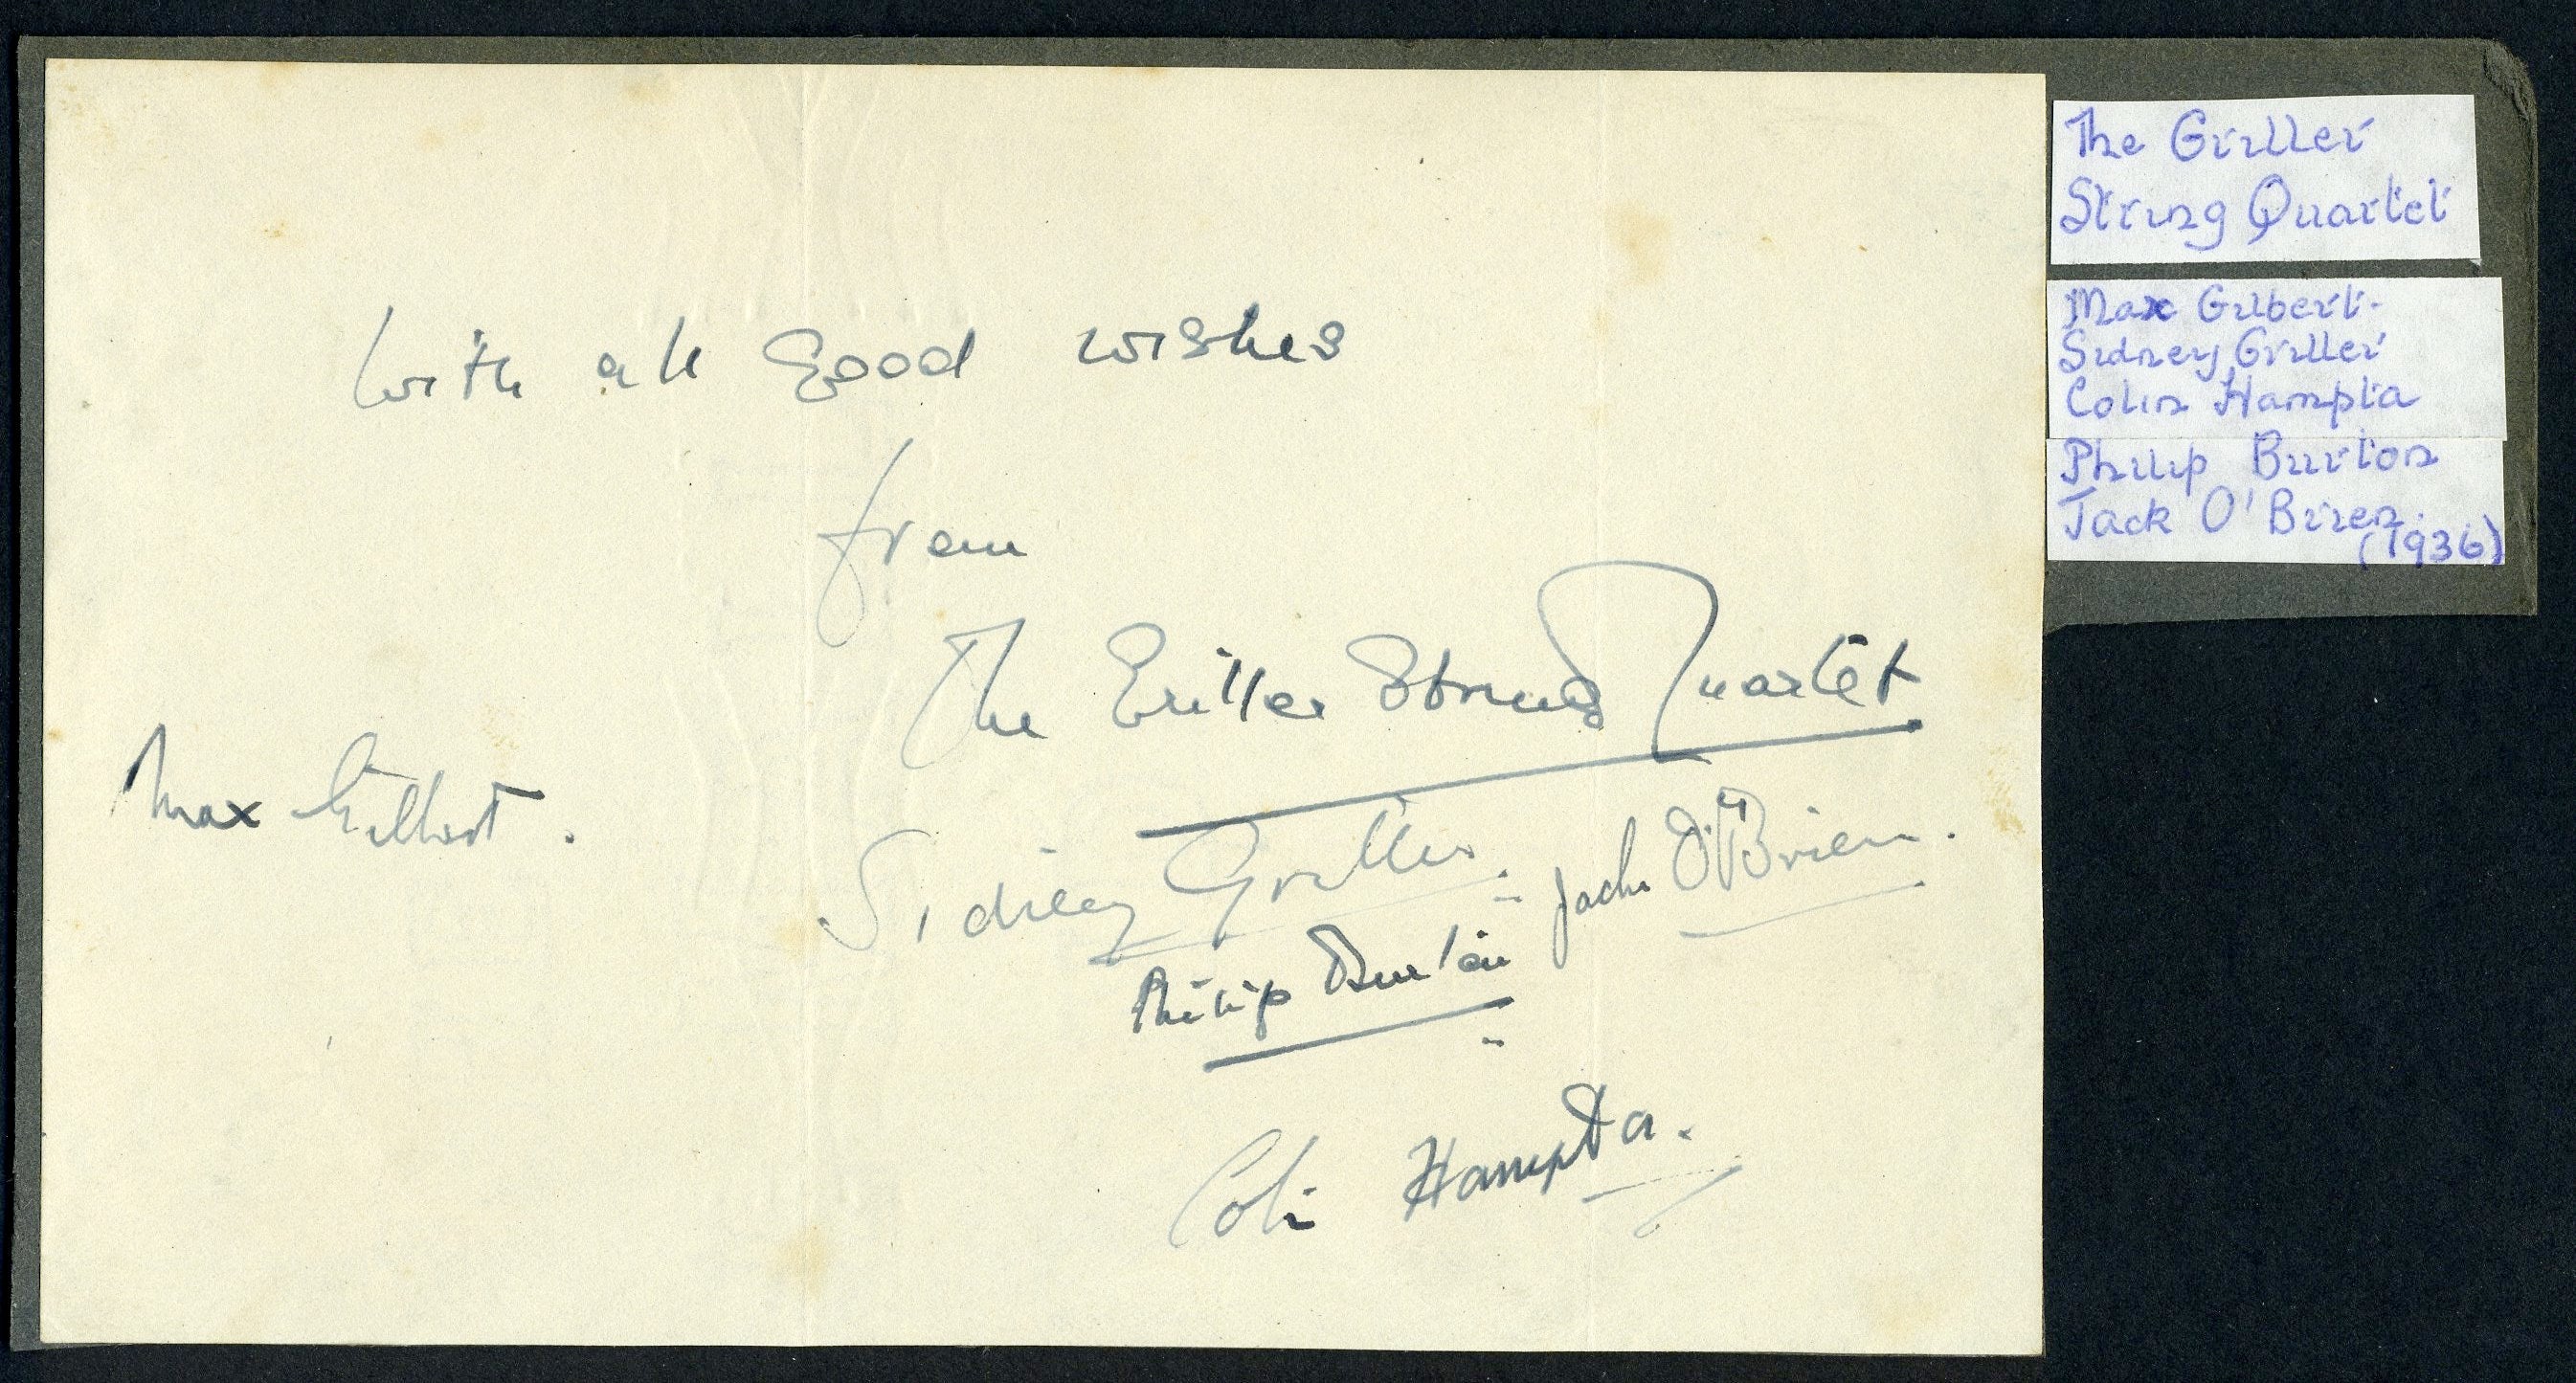 With all Good wishes
from
The Griller String Quartet
Max Gilbert.
Sidney Griller.
Jack O'Brien.
Philip Burton
Colin Hampton.
The Griller
String Quartet
Max Gilbert.
Sidney Griller
Colin Hampta
Philip Burton
Jack O'Brien.
(1936)